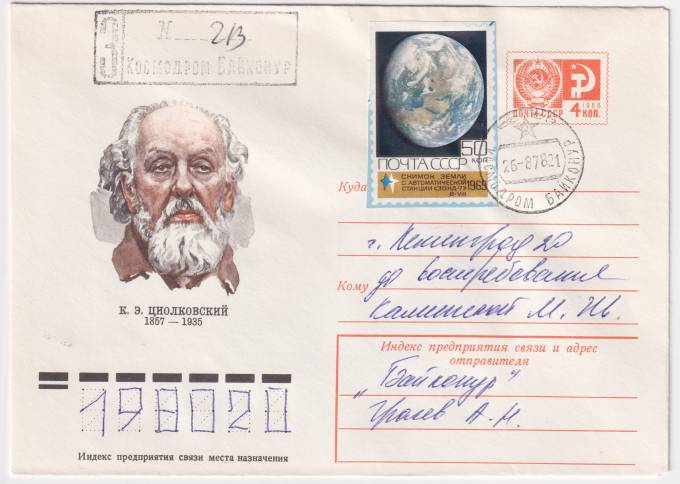 З
N 213
Космодром Байконур
ПОЧТА СССР
50
КОП
СНИМОК ЗЕМЛИ
С АВТОМАТИЧЕСКОЙ
СТАНЦИИ «ЗОНД-7»
8-VIII
1969
1966
ПОЧТА СССР
4 КОП.
26-87821
КОСМОДРОМ БАЙКОНУР
Куда
г. Ленинград 20
до востребования
Кому
М. Ив.
К. Э. ЦИОЛКОВСКИЙ
1857 — 1935
Индекс предприятия связи и адрес
отправителя
„Байконур"
А. Н.
198020
Индекс предприятия связи места назначения